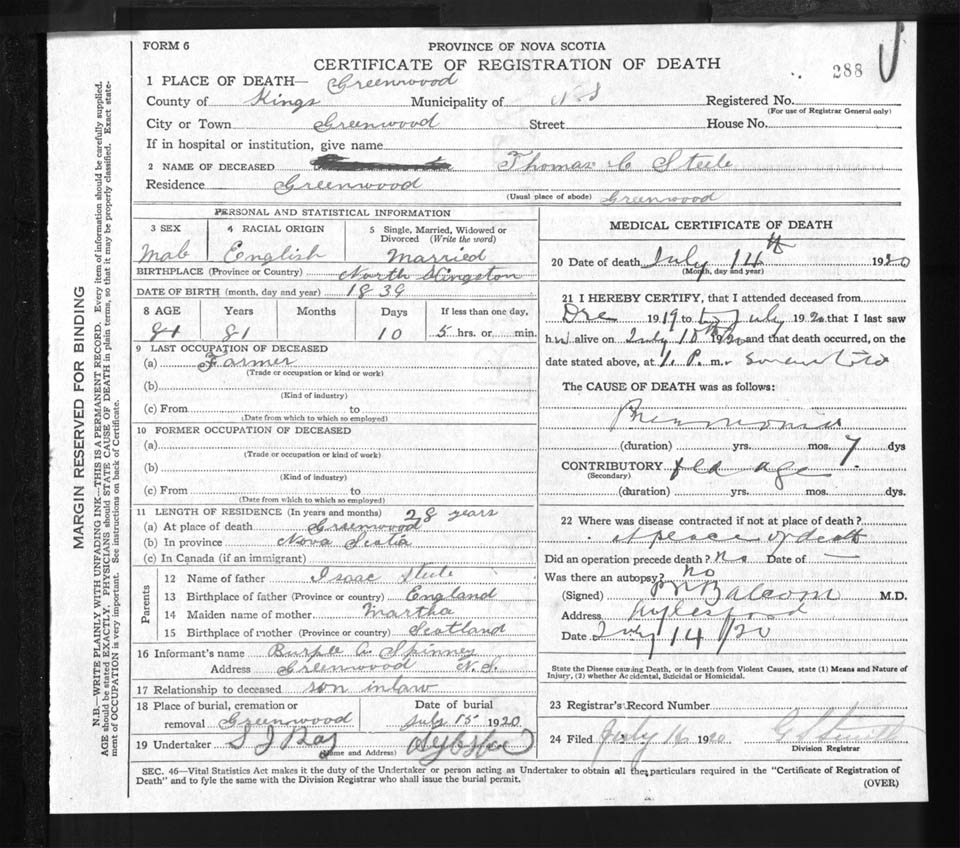 FORM 6
PROVINCE OF NOVA SCOTIA
CERTIFICATE OF REGISTRATION OF DEATH
288
1 PLACE OF DEATH— Greenwood
County of Kings Municipality of N S Registered No.
(For use of Registrar General only)
City or Town Greenwood Street House No.
If in hospital or institution, give name
2 NAME OF DECEASED Thomas C Steele
Residence Greenwood (Usual place of abode) Greenwood
PERSONAL AND STATISTICAL INFORMATION
3 SEX 4 RACIAL ORIGIN 5 Single, Married, Widowed or Divorced (Write the word)
Male English Married
BIRTHPLACE (Province or Country) North Kingston
DATE OF BIRTH (month, day and year) 1839
8 AGE Years Months Days If less than one day,
81 81 10 5 hrs. or min.
9 LAST OCCUPATION OF DECEASED
(a) Farmer
(Trade or occupation or kind or work)
(b)
(Kind of industry)
(c) From to
(Date from which to which so employed)
10 FORMER OCCUPATION OF DECEASED
(a)
(Trade or occupation or kind of work)
(b)
(Kind of industry)
(c) From to
(Date from which to which so employed)
11 LENGTH OF RESIDENCE (In years and months) 28 years
(a) At place of death Greenwood
(b) In province Nova Scotia
(c) In Canada (if an immigrant)
Parents
12 Name of father Isaac Steele
13 Birthplace of father (Province or country) England
14 Maiden name of mother Martha
15 Birthplace of mother (Province or country) Scotland
16 Informant's name Burpee A Spinney
Address Greenwood N.S.
17 Relationship to deceased son inlaw
18 Place of burial, cremation or removal Greenwood Date of burial July 15 1920
19 Undertaker S J (Name and Address)
MEDICAL CERTIFICATE OF DEATH
20 Date of death July 14th 1920
(Month, day and year)
21 I HEREBY CERTIFY, that I attended deceased from
Dec 1919 to July 1920 that I last saw
him alive on July 10th 1920 and that death occurred, on
date stated above, at 1. P. m.
The CAUSE OF DEATH was as follows:
Pneumonia
(duration) yrs. mos. 7 dys
CONTRIBUTORY old age
(Secondary)
(duration) yrs. mos. dys.
22 Where was disease contracted if not at place of death?
At place of death
Did an operation precede death? No Date of —
Was there an autopsy? No
(Signed) Balcom M.D.
Address Aylesford
Date July 14/20
State the Disease causing Death, or in death from Violent Causes, state (1) Means and Nature of
Injury, (2) whether Accidental, Suicidal or Homicidal.
23 Registrar's Record Number
24 Filed July 16 1920
Division Registrar
SEC. 46—Vital Statistics Act makes it the duty of the Undertaker or person acting as Undertaker to obtain all the particulars required in the "Certificate of Registration of
Death" and to fyle the same with the Division Registrar who shall issue the burial permit.
(OVER)
MARGIN RESERVED FOR BINDING
N.B.—WRITE PLAINLY WITH UNFADING INK—THIS IS A PERMANENT RECORD. Every item of information should be carefully supplied.
AGE should be stated EXACTLY. PHYSICIANS should STATE CAUSE OF DEATH in plain terms, so that it may be properly classified. Exact state-
ment of OCCUPATION is very important. See instructions on back of Certificate.